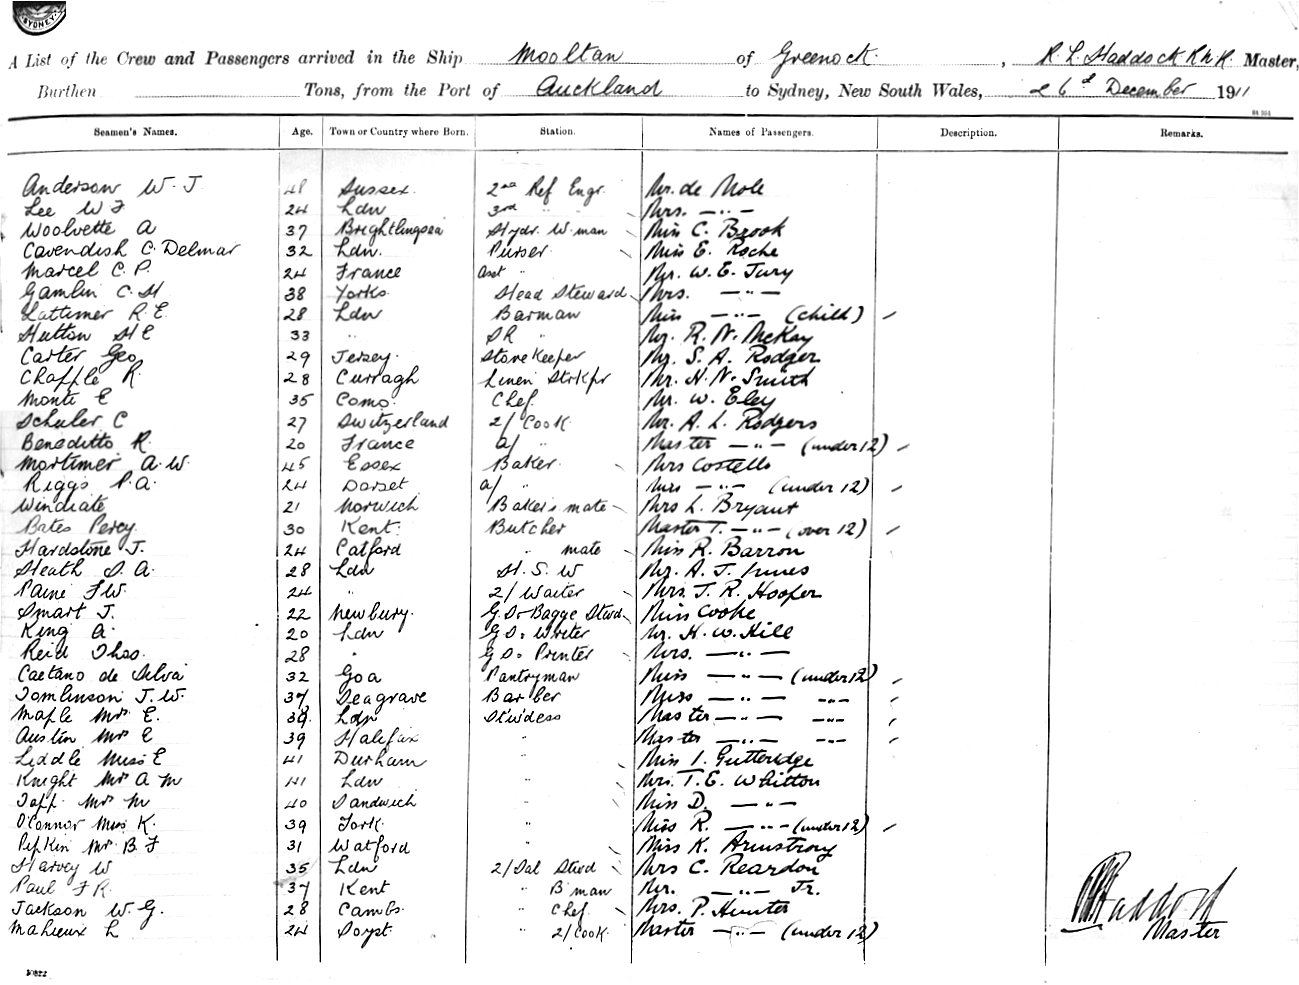 SYDNEY
A List of the Crew and Passengers arrived in the Ship Mooltan of Greenock, R. L. Haddock R N R. Master,
Burthen Tons, from the Port of Auckland to Sydney, New South Wales, 26th December 1911
Seamen's Names. Age. Town or Country where Born. Station. Names of Passengers. Description. Remarks.
Anderson W. J 48 Sussex 2nd Ref Engr. Mr. de Mole
Lee W J 24 Ldn 3rd " " Mrs. — " —
Woolvette A 37 Brightlingsea Hydr. W. man Miss C. Brook
Cavendish C. Delmar 32 Ldn. Purser Miss E. Roche
Marcel C. P. 24 France Asst " Mr. W. E. Jury
Gamlin C. H 38 Yorks Head Steward Mrs. — " —
Lattimer R. E. 28 Ldn Barman Miss — " — (child)
Hutton H E 33 " SR " Mr. R. N. McKay
Carter Geo 29 Jersey Storekeeper Mr. S. A. Rodger
Chaffle R. 28 Curragh Linen Strkpr Mr. H. N. Smith
Monti E 35 Como Chef Mr. W. Eley
Schuler C 27 Switzerland 2/ Cook Mr. A. L. Rodgers
Beneditto R. 20 France a/ " Master — " — (under 12)
Mortimer A. W. 45 Essex Baker Mrs Costello
Riggs P. A. 24 Dorset a/ " Miss — " — (under 12)
Windiate 21 Norwich Baker's mate Mrs L. Bryant
Bates Percy 30 Kent Butcher Master T. — " — (over 12)
Hardstone J. 24 Catford " mate Miss R. Barron
Heath S. A. 28 Ldn H. S. W Mr. A. J. Innes
Paine F W. 24 " 2/ Waiter Mrs. J. R. Hooper
Smart J. 22 Newbury. G. S. Bagge Stwd Miss Cooke
King A. 20 Ldn G S. Writer Mr. H. W. Hill
Reid Thos. 28 " G S. Printer Mrs. — " —
Caetano de Silva 32 Goa Pantryman Miss — " — (under 12)
Tomlinson J. W. 37 Seagrave Barber Miss — " — — " —
Maple Mrs E. 39 Ldn Stw'dess Master — " — — " —
Austin Mrs E 39 Halifax " Master — " — — " —
Liddle Miss E 41 Durham " Miss I. Gutteridge
Knight Mrs A M 41 Ldn " Mrs. T. E. Whitton
Tapp Mrs M 40 Sandwich " Miss D. — " —
O'Connor Miss K. 39 York " Miss R. — " — (under 12)
Pipkin Mr. B F 31 Watford " Miss K. Armstrong
Harvey W 35 Ldn 2/ Sal Stwd Mrs C. Reardon
Paul F R. 37 Kent " B'man Mr. — " — Jr.
Jackson W. G. 28 Cambs " Chef Mrs. P. Hunter
Mahieux L 24 " 2/ Cook Master — " — (under 12)
Haddock
Master